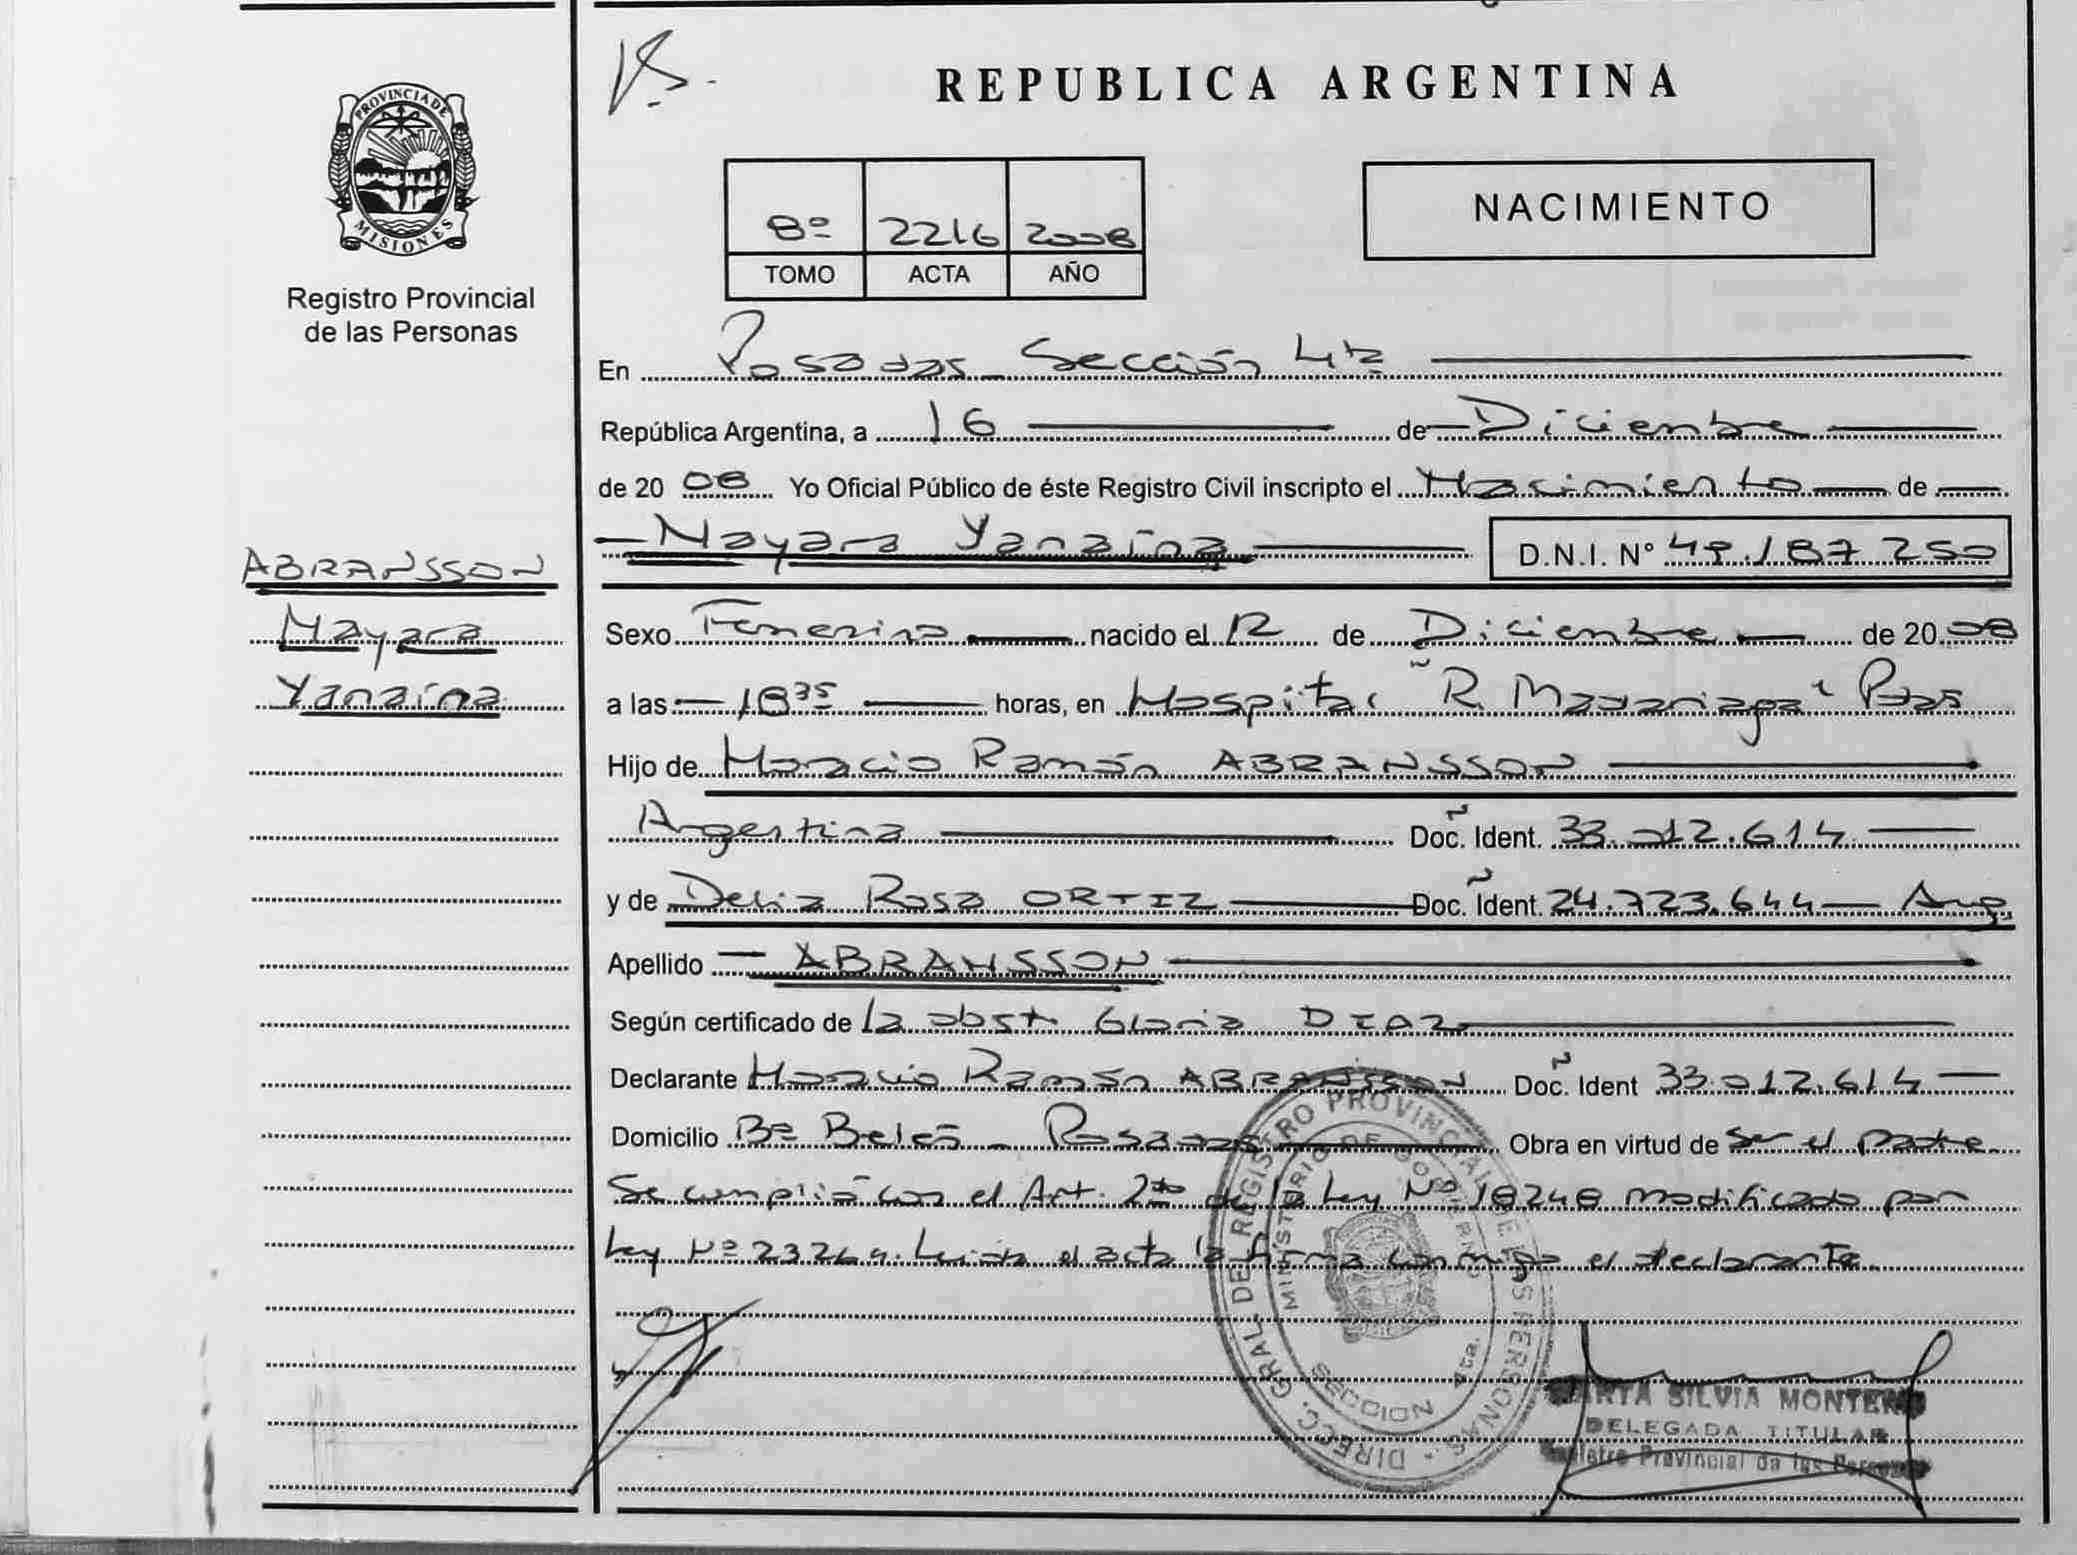 PROVINCIA DE
MISIONES
Registro Provincial
de las Personas
ABRANSSON
Mayara
Yanaína
REPUBLICA ARGENTINA
8º 2216 2008
TOMO ACTA AÑO
NACIMIENTO
En Posadas - Sección 4ta
República Argentina, a 16 de Diciembre
de 2008 Yo Oficial Público de éste Registro Civil inscripto el Nacimiento de
Mayara Yanaína D.N.I. N° 49.187.250
Sexo Femenino nacido el 12 de Diciembre de 2008
a las 18 35 horas, en Hospital "R. Madariaga" Pdas
Hijo de Horacio Ramón ABRANSSON
Argentina Doc. Ident. 33.012.614
y de Delia Rosa ORTIZ Doc. Ident. 24.723.644 - Arg.
Apellido ABRANSSON
Según certificado de la obst. Gloria DIAZ
Declarante Horacio Ramón ABRANSSON Doc. Ident 33.012.614
Domicilio Bº Belén - Posadas Obra en virtud de ser el padre
Se cumplió con el Art. 2do de la Ley Nº 18248 modificado por
Ley Nº 23264. Leída el acta la firma conmigo el declarante.
DIRECC. GRAL. DEL REGISTRO PROVINCIAL DE LAS PERSONAS
MINISTERIO DE GOBIERNO
SECCION 4ta.
MARTA SILVIA MONTERO
DELEGADA TITULAR
Registro Provincial de las Personas